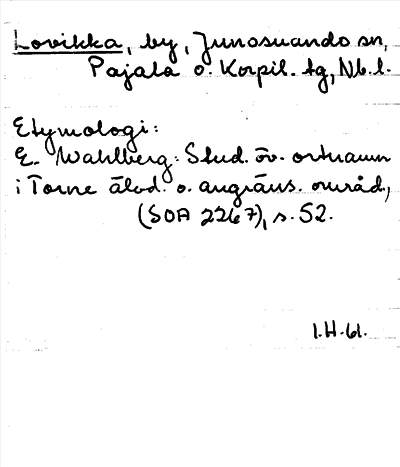 Lovikka, by, Junosuando sn,
Pajala o. Korpil. tg, Nb. l.
Etymologi:
E. Wahlberg: Stud. öv. ortnamn
i Torne älvd. o. angräns. områd.,
(SOA 2267), s. 52.
I.H.61.